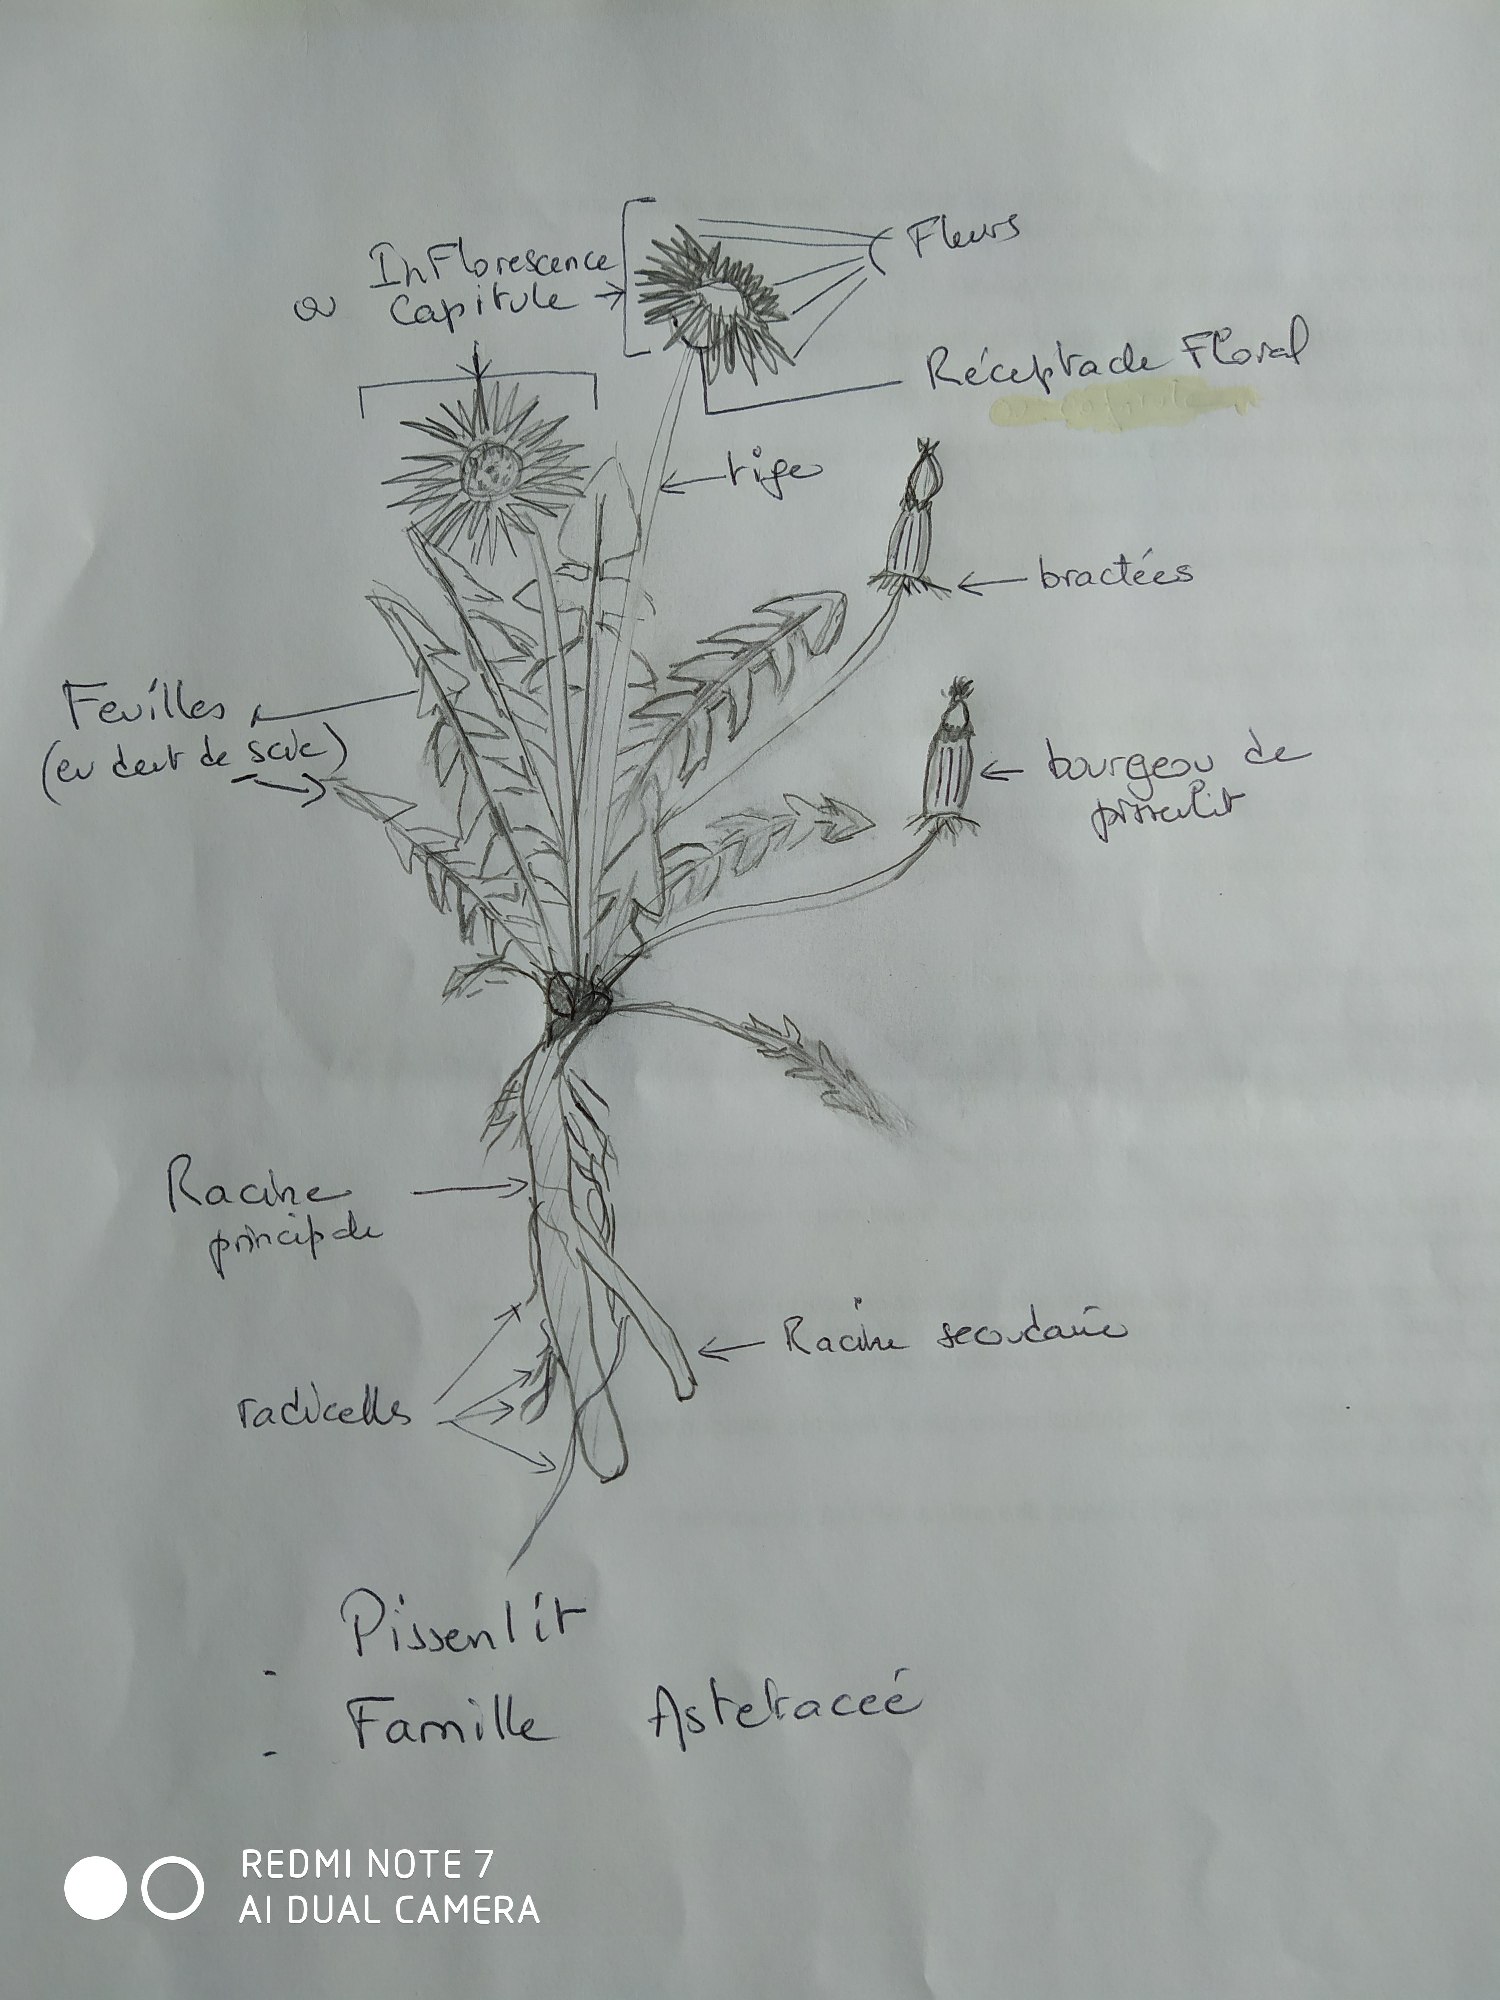 Fleurs
Inflorescence
ou Capitule
Réceptacle Floral
tige
bractées
Feuilles
(en dent de scie)
bourgeon de
pissenlit
Racine
principale
Racine secondaire
radicelles
Pissenlit
- Famille Asteraceé
-
REDMI NOTE 7
AI DUAL CAMERA